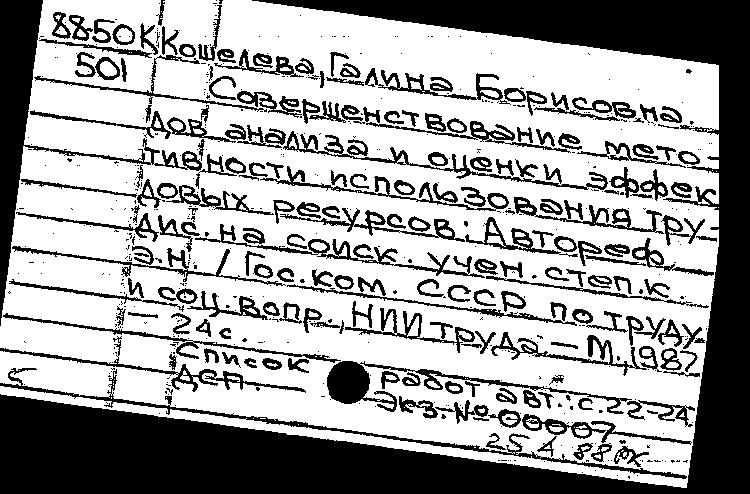 88-50К Кошелева, Галина Борисовна.
501 Совершенствование мето-
дов анализа и оценки эффек
тивности использования тру-
довых ресурсов: Автореф.
дис. на соиск. учен. степ. к.
э.н. / Гос. ком. СССР по труду
и соц. вопр., НИИ труда — М., 1987
— 24 с.
Список работ авт.: с. 22-24
Деп. — Экз. № 00007
25.4.88
5